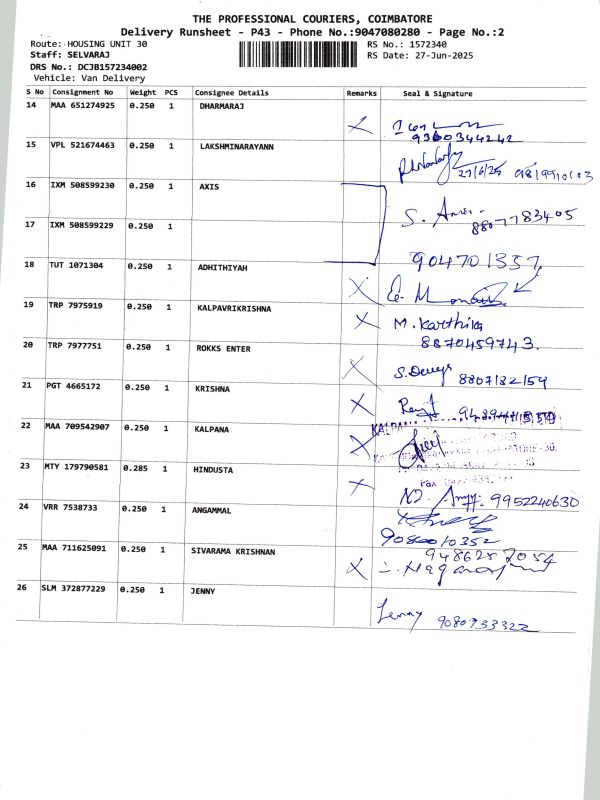 THE PROFESSIONAL COURIERS, COIMBATORE
Delivery Runsheet - P43 - Phone No.:9047080280 - Page No.:2
Route: HOUSING UNIT 30 RS No.: 1572340
Staff: SELVARAJ RS Date: 27-Jun-2025
DRS No.: DCJB157234002
Vehicle: Van Delivery
S No Consignment No Weight PCS Consignee Details Remarks Seal & Signature
14 MAA 651274925 0.250 1 DHARMARAJ
9360344242
15 VPL 521674463 0.250 1 LAKSHMINARAYANN
27/6/25
16 IXM 508599230 0.250 1 AXIS
8807783405
17 IXM 508599229 0.250 1
904701357
18 TUT 1071304 0.250 1 ADHITHIYAH
19 TRP 7975919 0.250 1 KALPAVRIKRISHNA M. Karthika
8870459743.
20 TRP 7977751 0.250 1 ROKKS ENTER
8807132159
21 PGT 4665172 0.250 1 KRISHNA
22 MAA 709542907 0.250 1 KALPANA
23 MTY 179790581 0.285 1 HINDUSTA
9952240630
24 VRR 7538733 0.250 1 ANGAMMAL
25 MAA 711625091 0.250 1 SIVARAMA KRISHNAN
26 SLM 372877229 0.250 1 JENNY
Jenny 9080733322